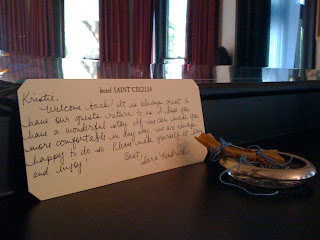 hotel SAINT CECILIA
Kristie,
Welcome back! It is always great to
have our guests return to us. I hope you
have a wonderful stay. If we can make you
more comfortable in any way, we are always
happy to do so. Please make yourself at home
and enjoy!
Best,
Sara Kendrick